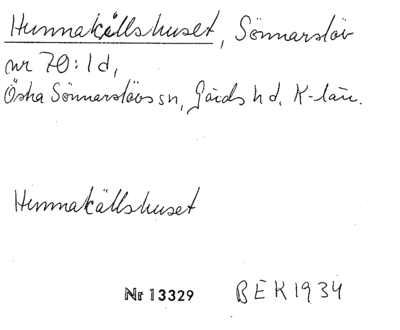 Hunnakällshuset, Sönnarslöv
nr 70:1d,
Östra Sönnarslövs sn, Gärds hd, K-län.
Hunnakällshuset
Nr 13329 BEK 1934